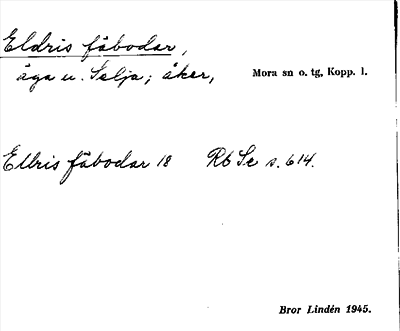 Eldris fäbodar,
äga u. Selja; åker, Mora sn o. tg, Kopp. l.
Ellris fäbodar 18 Rb Se s. 614.
Bror Lindén 1945.